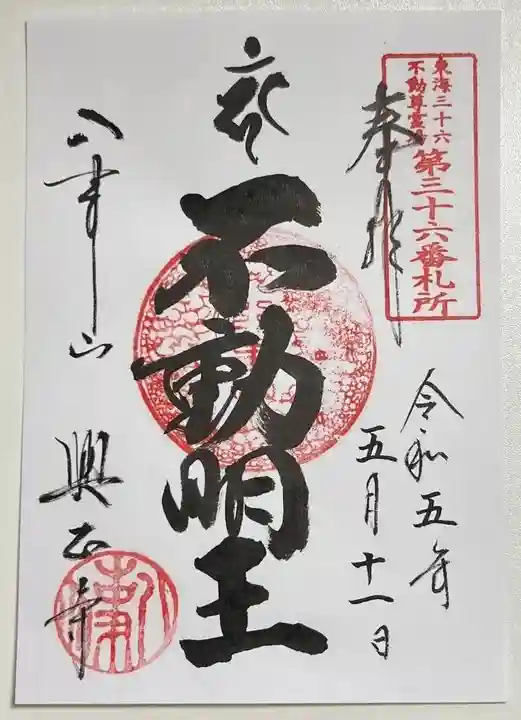 東海三十六
不動尊霊場
第三十六番札所
奉拝
令和五年
五月十一日
不動明王
八事山 興正寺
八事